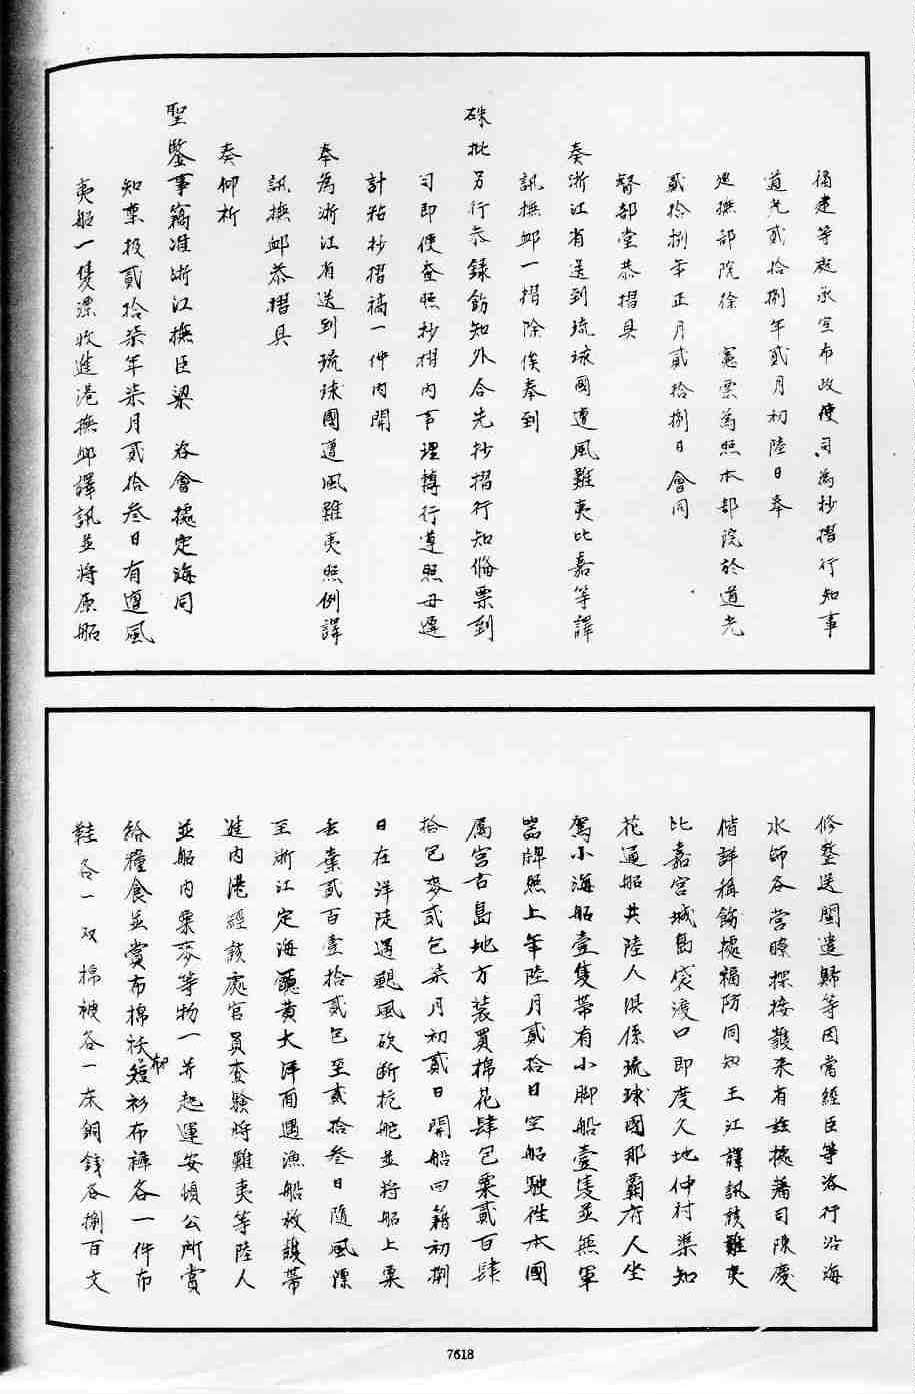 福建等處承宣布政使司為抄摺行知事
道光貳拾捌年貳月初陸日奉
巡撫部院徐 憲票為照本部院於道光
貳拾捌年正月貳拾捌日會同
督部堂恭摺具
奏浙江省送到琉球國遭風難夷比嘉等譯
訊撫卹一摺除俟奉到
硃批另行恭錄飭知外合先抄摺行知備票到
司即便查照抄摺內事理轉行遵照毋遲
計粘抄摺稿一件內開
奏為浙江省送到琉球國遭風難夷照例譯
訊撫卹恭摺具
奏仰祈
聖鑒事竊准浙江撫臣梁 咨會據定海同
知稟投貳拾柒年柒月貳拾叁日有遭風
夷船一隻漂收進港撫卹譯訊並將原船
修整送閩遣歸等因當經臣等洛行沿海
水師各營瞭探接護來有茲據藩司陳慶
偕詳稱飭據福防同知王江譯訊該難夷
比嘉宮城島袋渡口即度久地仲村渠知
花通船共陸人俱係琉球國那霸府人坐
駕小海船壹隻帶有小腳船壹隻並無軍
器牌照上年陸月貳拾日空船駛往本國
屬宮古島地方裝買棉花肆包粟貳百肆
拾包麥貳包柒月初貳日開船回籍初捌
日在洋陡遇颶風砍斷桅舵並將船上粟
丟棄貳百壹拾貳包至貳拾叁日隨風漂
至浙江定海廳黃大洋面遇漁船救護帶
進內港經該處官員查驗將難夷等陸人
並船內粟麥等物一并起運安頓公所賞
給糧食並賞布棉袄布短衫布褲各一件布
鞋各一双棉被各一床銅錢各捌百文
7618